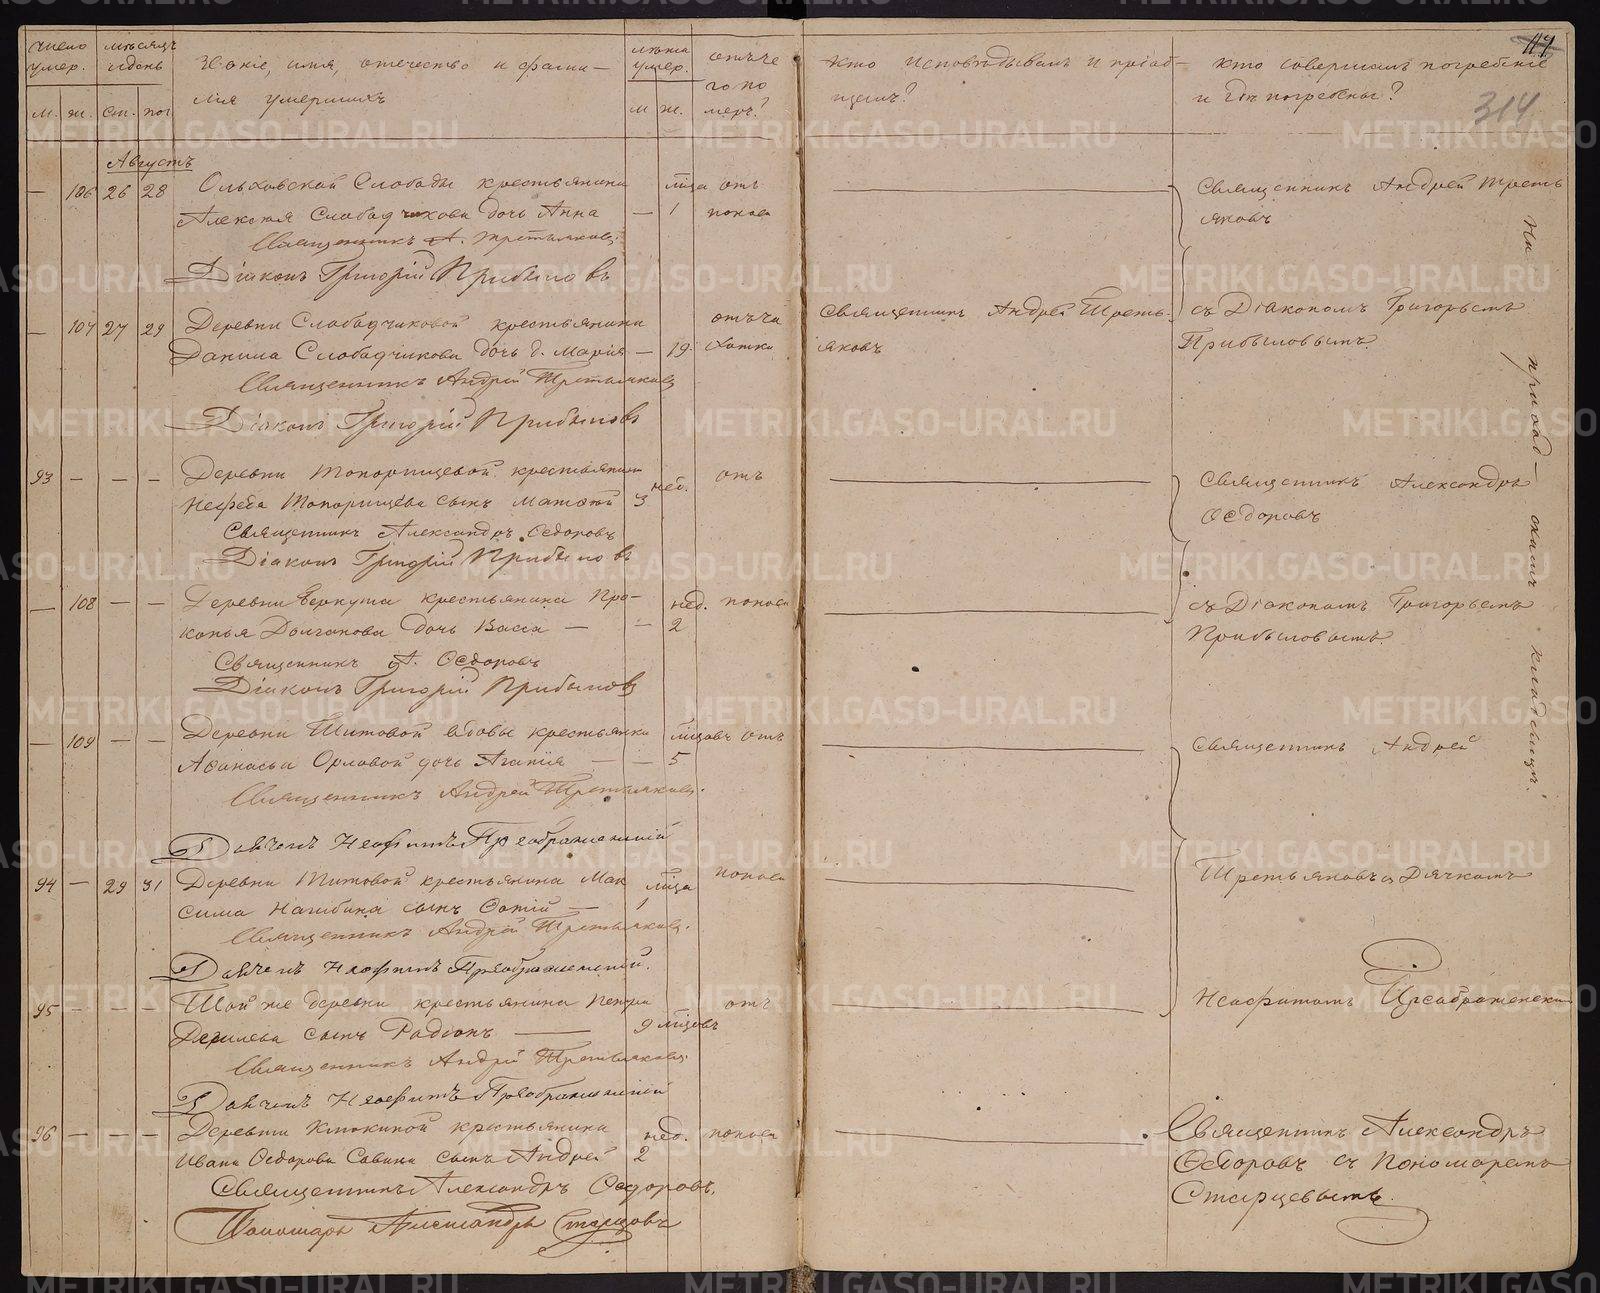 число умер.
мѣсяцъ и день
Званіе, имя, отечество и фами-
лія умершихъ
лѣта умер.
отъ че
го по
мерѣ?
кто исповѣдывалъ и пріоб-
щалъ?
кто совершалъ погребеніе
и гдѣ погребены?
117
314
м. ж. ст. по м ж.
Августъ
— 106 26 28 Ольховской Слободы крестьянина
Алексѣя Слободчикова дочь Анна — 1 поноса
Священникъ А. Третьяковъ.
Діаконъ Григорій Прибыловъ
Священникъ Андрей Треть
яковъ
— 107 27 29 Деревни Слободчиковой крестьянина
Данила Слободчикова дочь д. Марія — 19. отъ ча
хотки
Священникъ Андрей Третьяковъ
Діаконъ Григорій Прибыловъ
Священникъ Андрей Треть-
яковъ
съ Діакономъ Григорьемъ
Прибыловымъ.
93 — — — Деревни Топорищевой крестьянина
Нефеда Топорищева сынъ Матѳей 3 нед. отъ
Священникъ Александръ Ѳедоровъ
Діаконъ Григорій Прибыловъ
Священникъ Александръ
Ѳедоровъ
— 108 — — Деревни Беркута крестьянина Про-
копья Долганова дочь Васса — — 2 нед. поноса
Священникъ А. Ѳедоровъ
Діаконъ Григорій Прибыловъ
съ Діакономъ Григорьемъ
Прибыловымъ.
— 109 — — Деревни Титовой вдовы крестьянки
Аѳанасьи Орловой дочь Агапія — — 5 мѣсяцовъ отъ
Священникъ Андрей Третьяковъ.
Дьячекъ Неофитъ Преображенскій
Священникъ Андрей
94 — 29 31 Деревни Титовой крестьянина Мак
сима Нагибина сынъ Фотій — 1 поноса
Священникъ Андрей Третьяковъ.
Дьячекъ Неофитъ Преображенскій.
Третьяковъ съ Дячкомъ
95 — — — Той же деревни крестьянина Петра
сынъ Радіонъ — 9 мѣсцовъ отъ
Священникъ Андрей Третьяковъ
Дьячекъ Неофитъ Преображенскій
Неофитомъ Преображенски
96 — — — Деревни Клюкиной крестьянина
Ивана Ѳедорова Савина сынъ Андрей 2 нед. поноса
Священникъ Александръ Ѳедоровъ.
Пономарь Александръ Старцовъ
Священникъ Александръ
Ѳедоровъ съ Пономаремъ
Старцевымъ.
На приход-
скомъ кладбищѣ.
METRIKI.GASO-URAL.RU